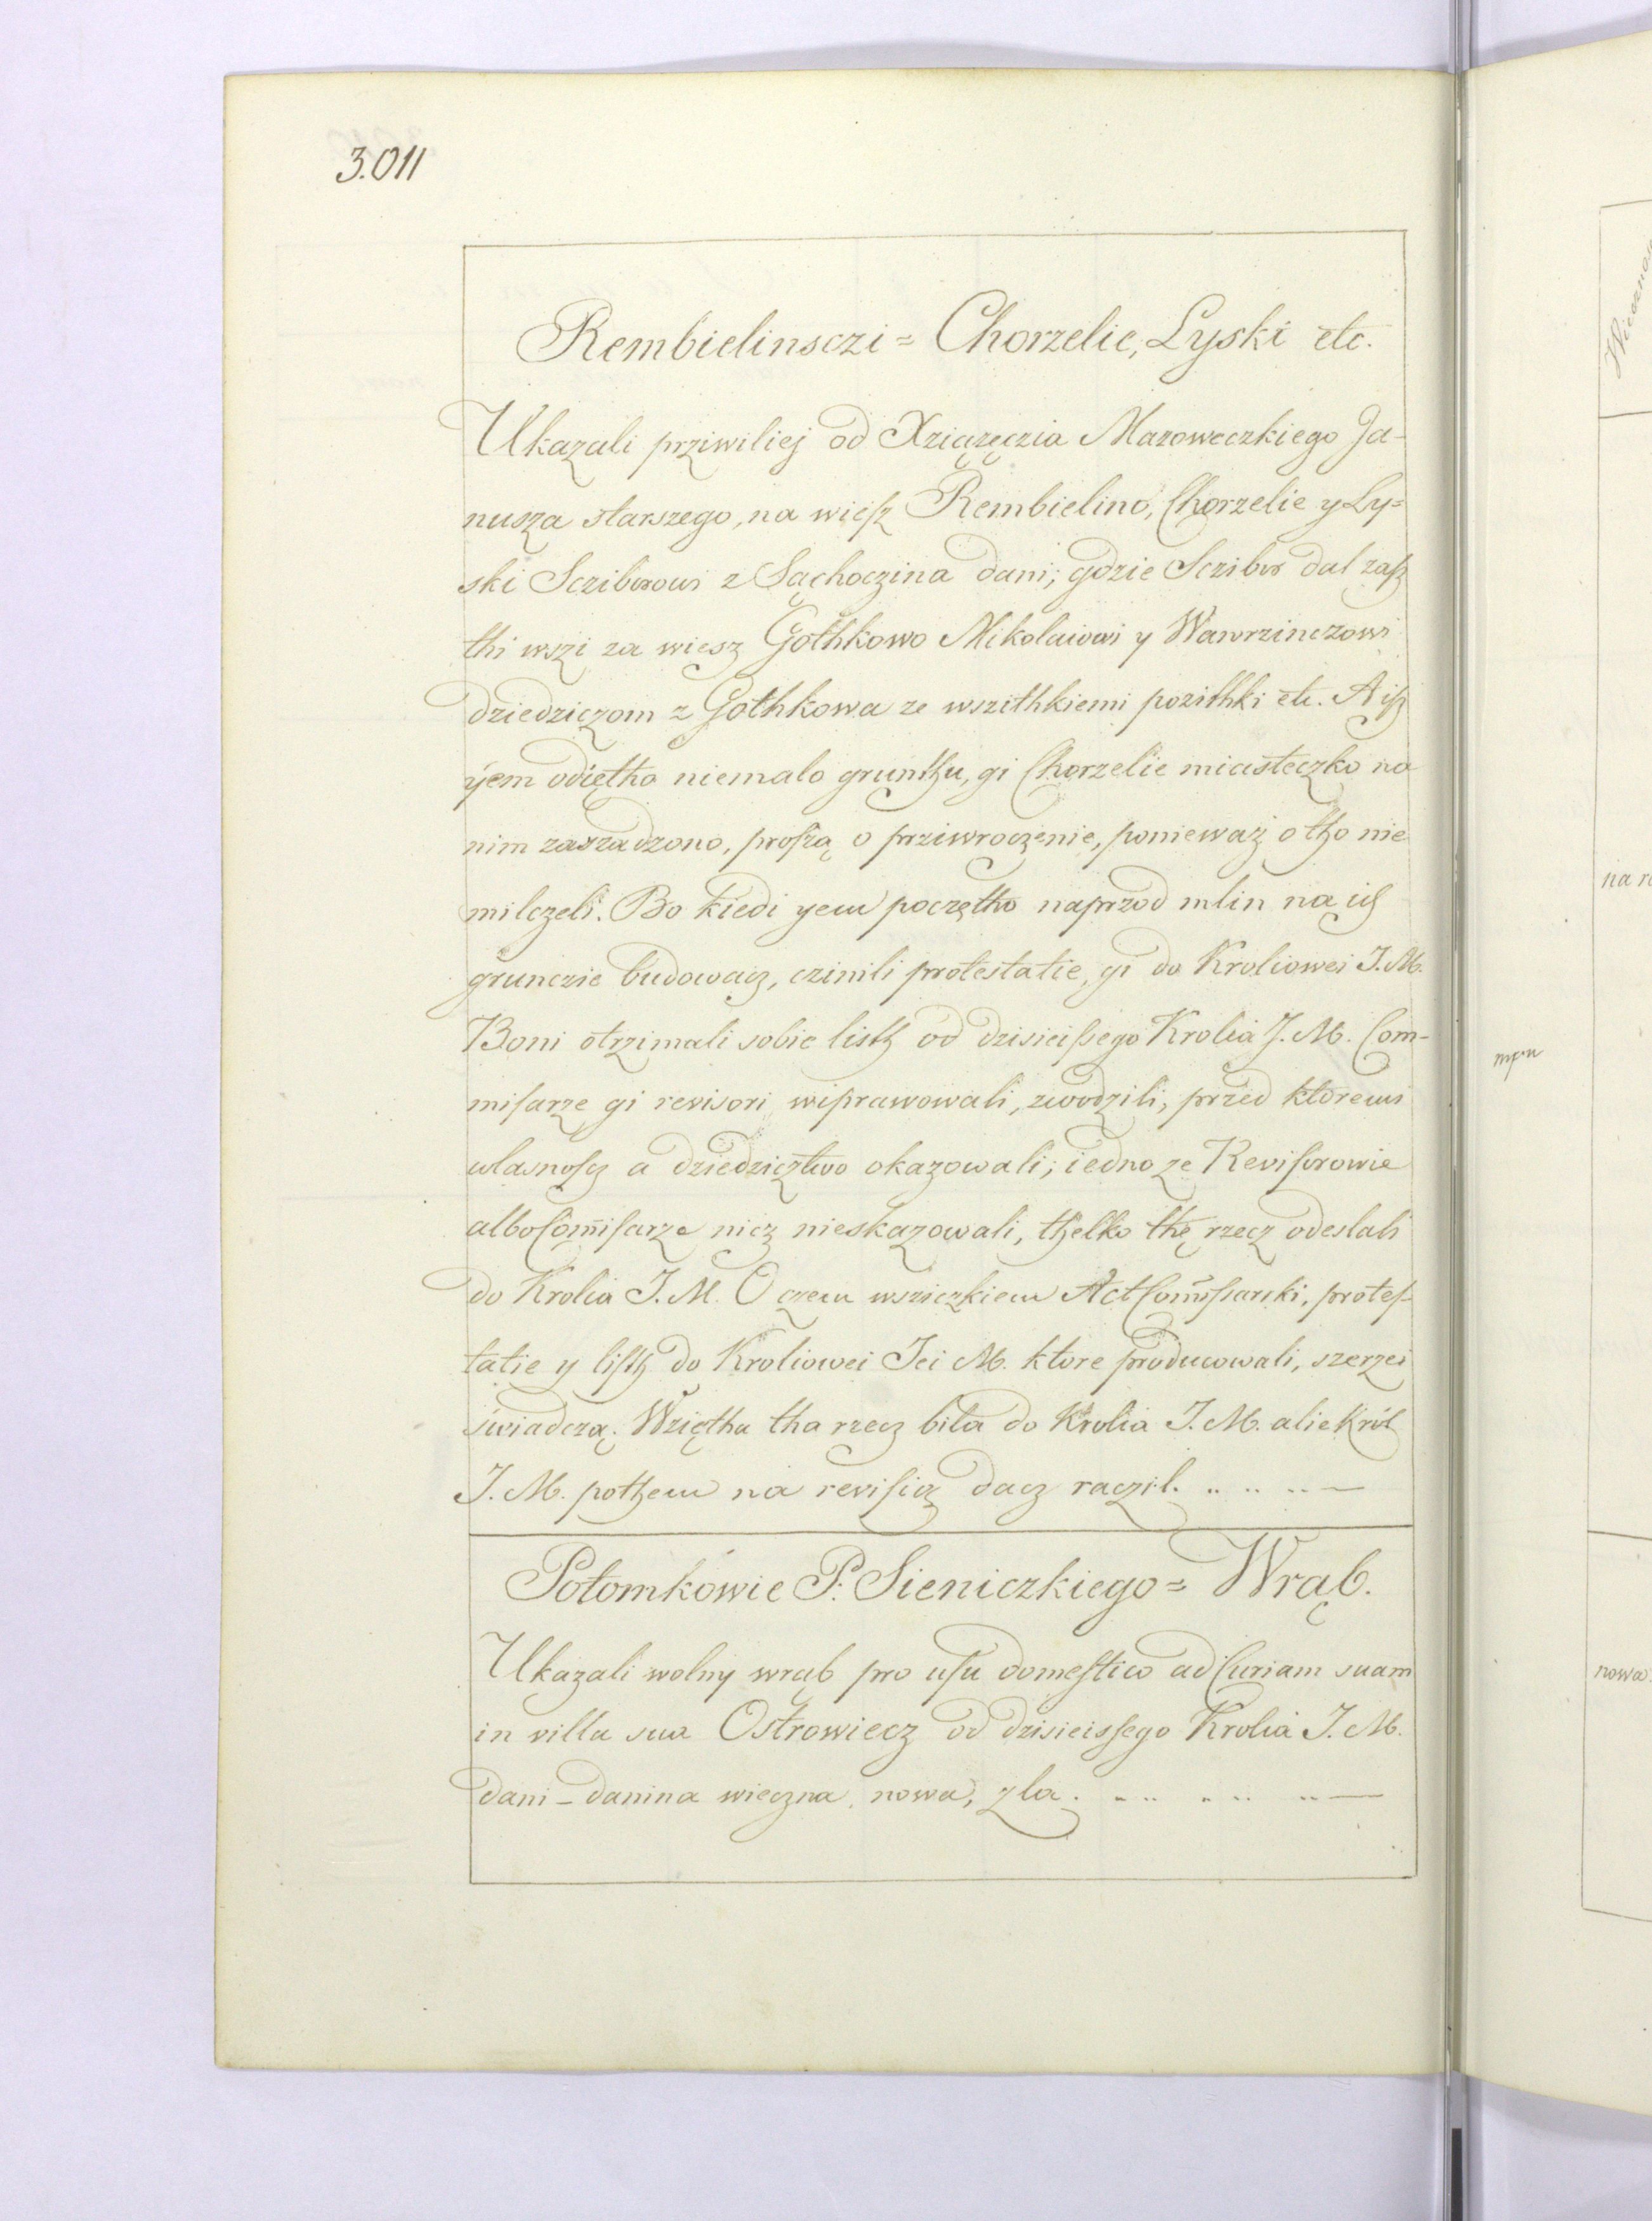 3.011
Rembielinsczi = Chorzelie, Lyski etc.
Ukazali prziwiliej od Xziążęczia Mazoweczkiego Ja-
nusza starszego, na wiesz Rembielino, Chorzelie y Ly=
ski Scziborowi z Sąchoczina dani; gdzie Scibor dal zasz
thi wszi za wiesz Gothkowo Mikolaiowi y Wawrzinczowi
dziedziczom z Gothkowa ze wszithkiemi pozithki etc. A isz
yem odiętho niemalo grunthu, gi Chorzelie miasteczko na
nim zaszadzono, proszą o prziwroczenie, ponieważ o tho nie
milczeli. Bo kiedi yem poczętho naprzod mlin na ich
grunczie budowacz, czinili protestatie, gi do Kroliowei J. M.
Boni otrzimali sobie listh od dzisieissego Krolia J. M. Com-
misarze gi revisori wiprawowali, zwodzili, przed ktoremi
wlasnoscz a dziedzicztwo okazowali; iedno ze Revisorowie
albo Comisarze nicz nieskazowali, thelko thę rzecz odeslali
do Krolia J. M. O czem wsziczkiem Act Comissarski, protes-
tatie y listh do Kroliowei Jei M. ktore producowali, szerzei
świadczą. Wziętha tha rzecz bila do Krolia J. M. alie Król
J. M. pothem na revisią dacz raczil. .. .. .. —
Potomkowie P. Sieniczkiego = Wrąb.
Ukazali wolny wrąb pro usu domestico ad Curiam suam
in villa sua Ostrowiecz od dzisieissego Krolia J. M.
dani - danina wieczna nowa, zla. .. .. .. —
na
mpn
nowa